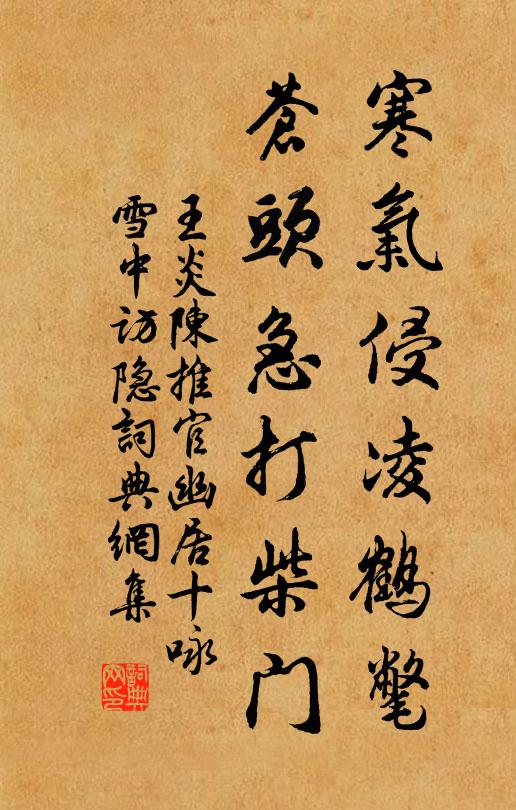 寒氣侵凌鶴氅
蒼頭急打柴门
王炎陳推官幽居十咏
雪中访隐詞典網集
詞典网印